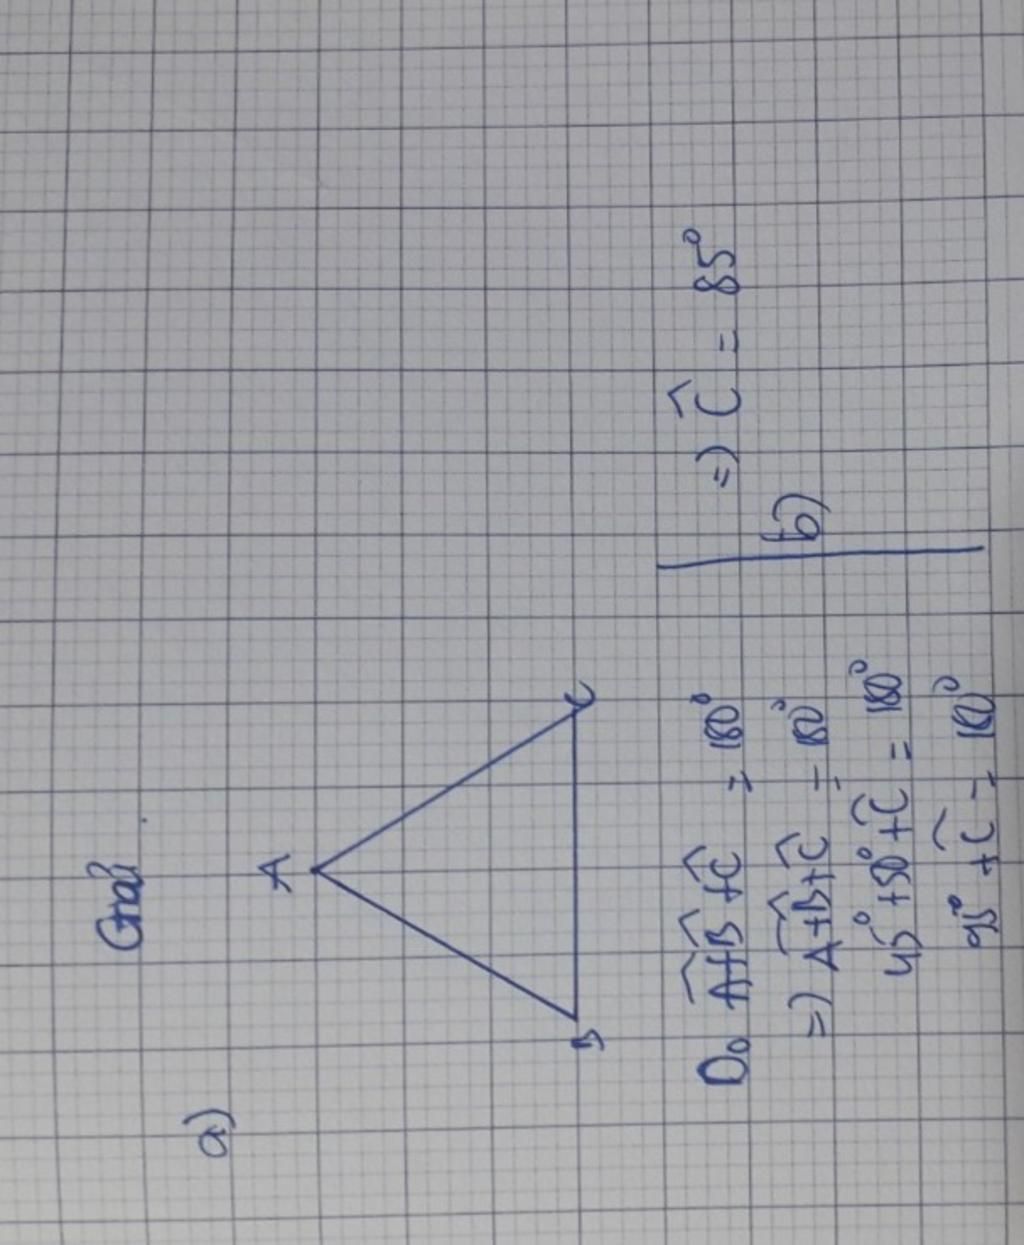 Giải
a)
A
B
C
Do Â+B̂+Ĉ = 180°
=) Â+B̂+Ĉ = 180°
45°+50°+Ĉ = 180°
95°+Ĉ = 180°
=) Ĉ = 85°
b)